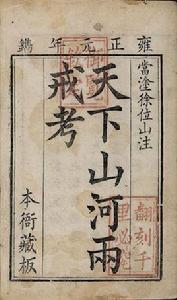 雍正元年鐫
當塗徐位山注
天下山河兩
戒考
本衙藏板
翻刻千
里必究